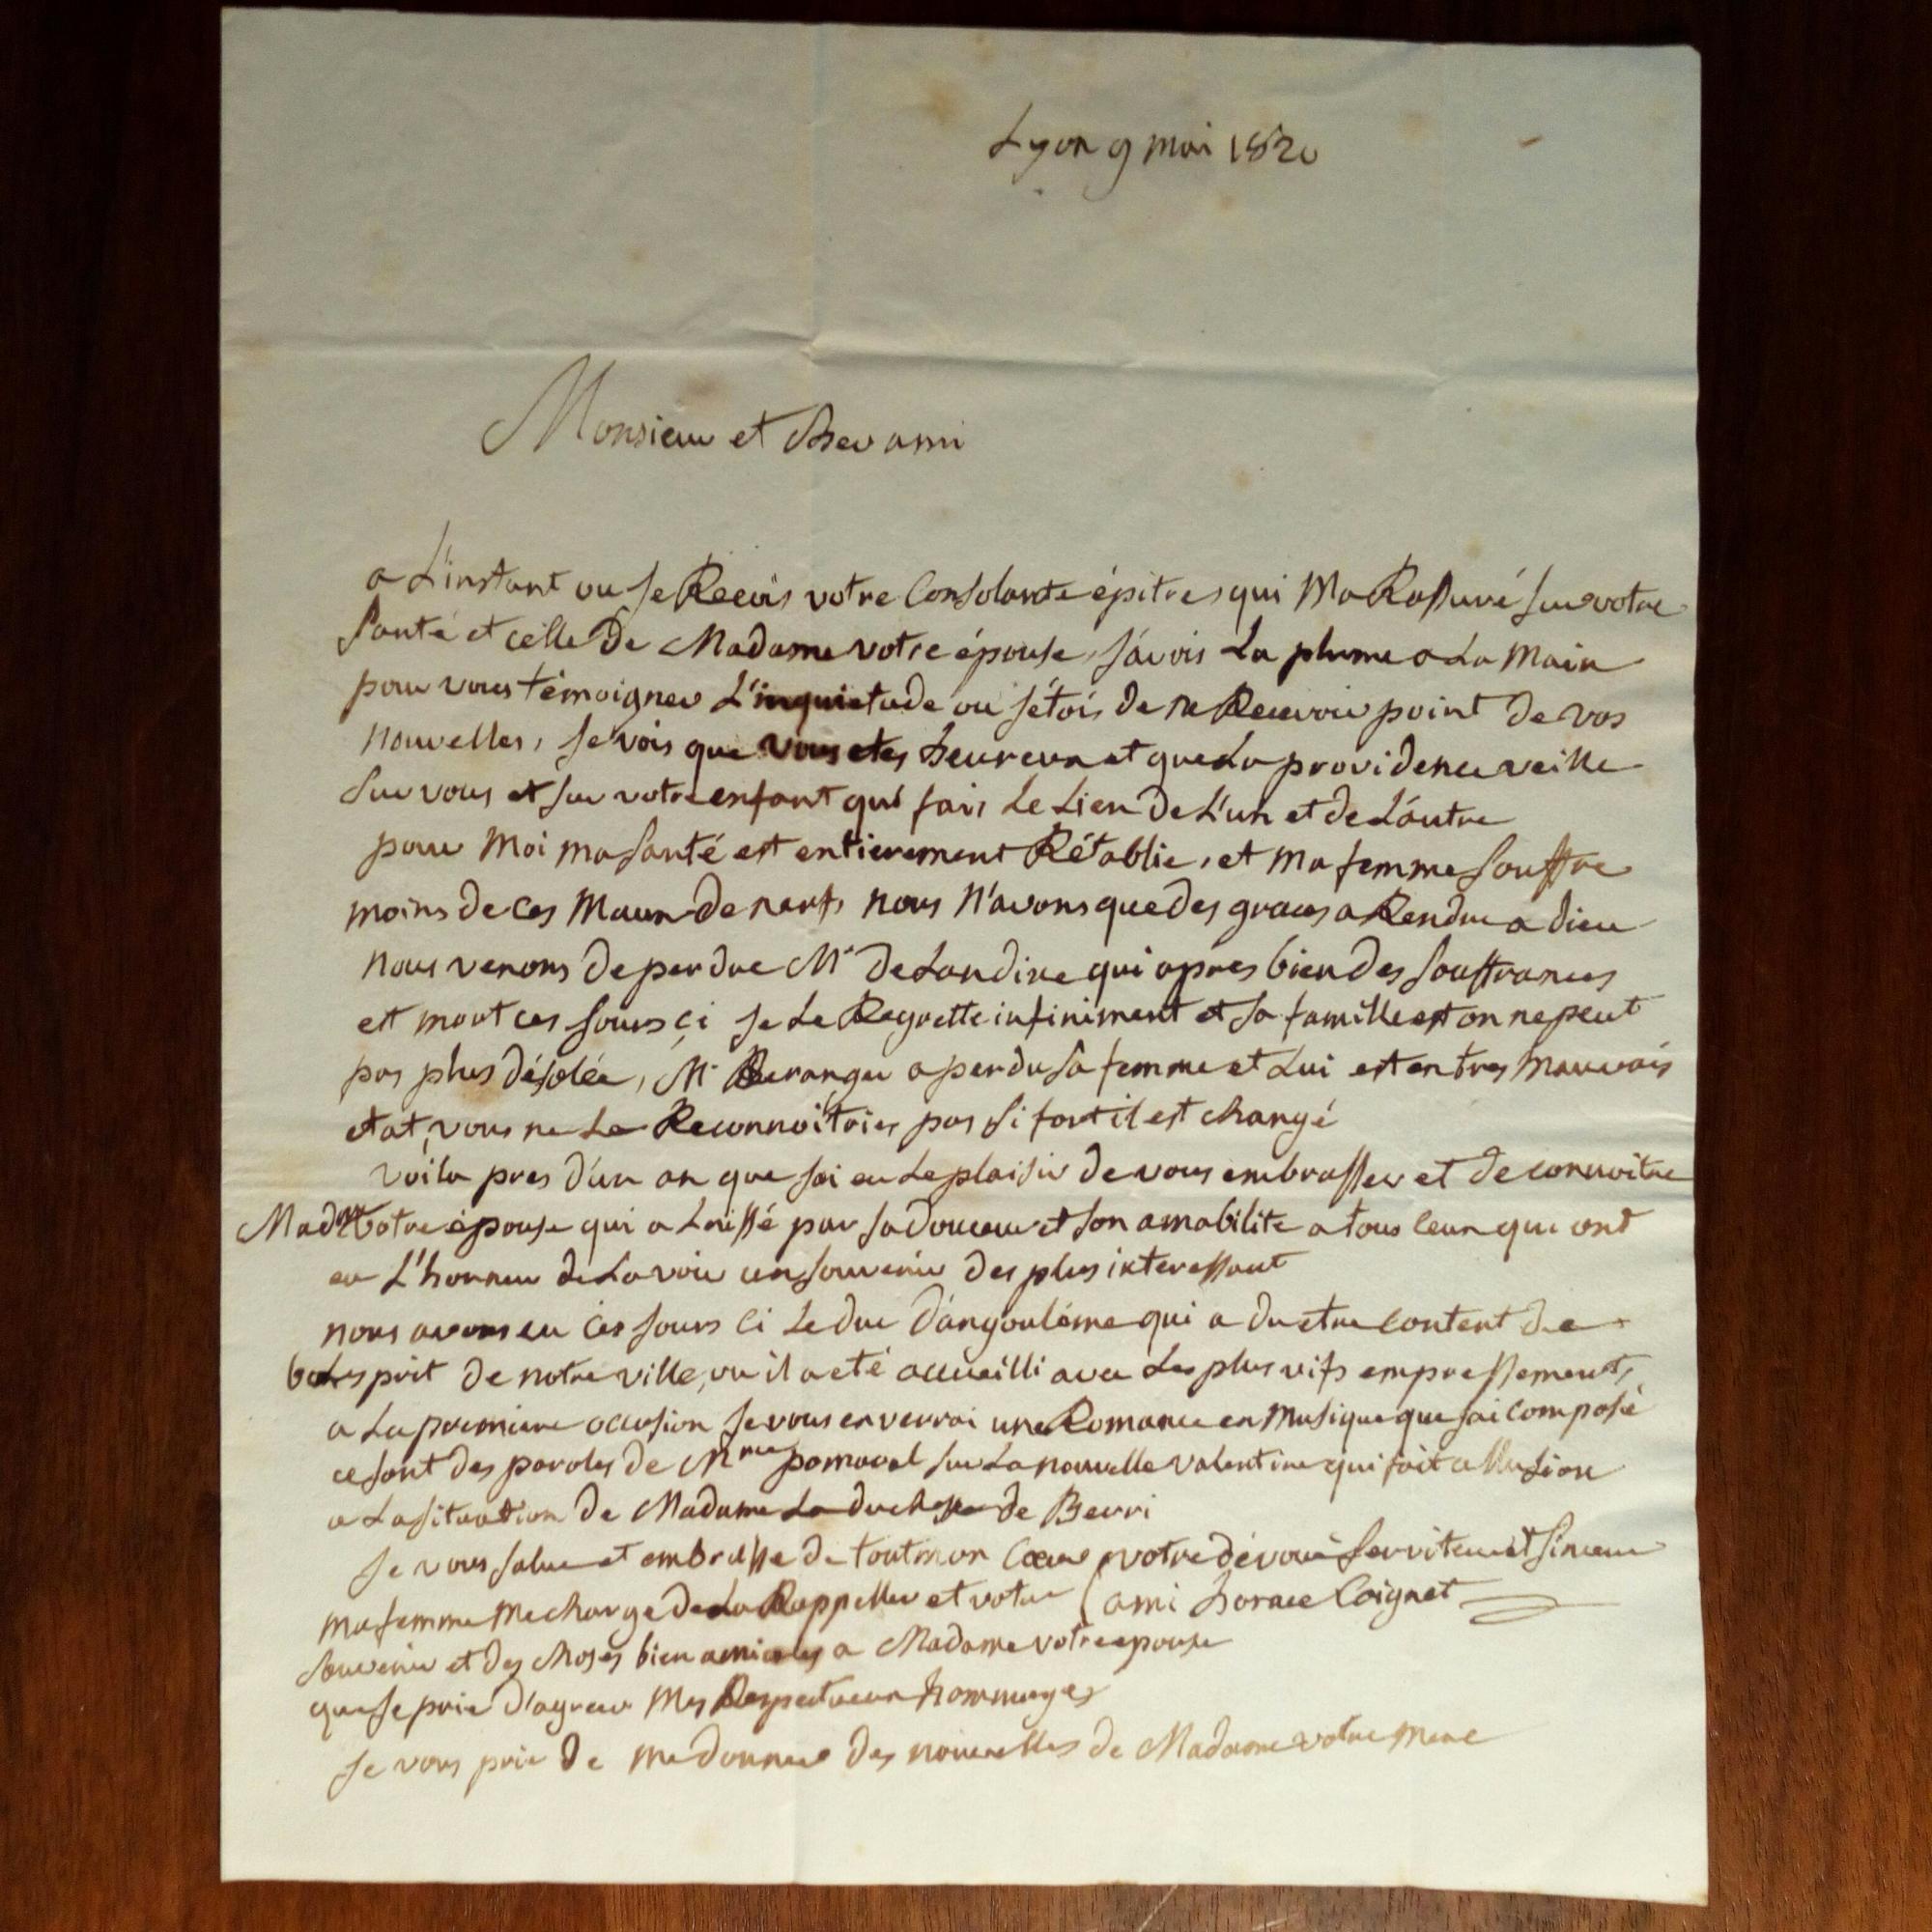 Lyon 9 mai 1820
Monsieur et cher ami
a L'instant ou je Recois votre Consolante épitre, qui Ma Rassuré sur votre
santé et celle De Madame votre épouse, j'avois La plume a La Main
pour vous témoigner L'inquietude ou j'étois De ne Recevoir point De vos
nouvelles, je vois que vous etes heureux et que La providence veille
sur vous et sur votre enfant qui fais Le Lien De L'un et de L'autre
pour Moi ma santé est entierement Rétablie, et Ma femme souffre
moins de ces Maux De nerfs nous N'avons que Des graces a Rendre a Dieu
nous venons De perdre Mr DeLandine qui apres bien Des souffrances
est mort ces jours ci je Le Regrette infiniment et sa famille est on ne peut
pas plus Désolée, Mr Beranger a perdu sa femme et Lui est en tres Mauvais
etat, vous ne Le Reconnoitries pas si fort il est changé
voila pres D'un an que j'ai eu Le plaisir De vous embrasser et De connoitre
Madme votre épouse qui a Laissé par sa Douceur et son amabilite a tous ceux qui ont
eu L'honneur De La voir un souvenir Des plus interessant
nous avons eu ces jours ci Le Duc D'angoulême qui a Du etre content De
bon esprit De notre ville, ou il a eté accueilli avec Les plus vifs empressements,
a La premiere occasion je vous enverrai une Romance en Musique que j'ai composé
ce sont Des paroles De Mme sur La nouvelle valentine qui fait allusion
a La situation De Madame La duchesse De Berri
je vous salue et embrasse De tout mon Coeur votre Dévoué serviteur et sincere
ami horace Coignet
Ma femme Me charge De La Rappeller et votre
souvenir et Des choses bien amicales a Madame votre epouse
que je prie D'agreer Mes Respectueux hommages
je vous prie De me Donner Des nouvelles De Madame votre Mere